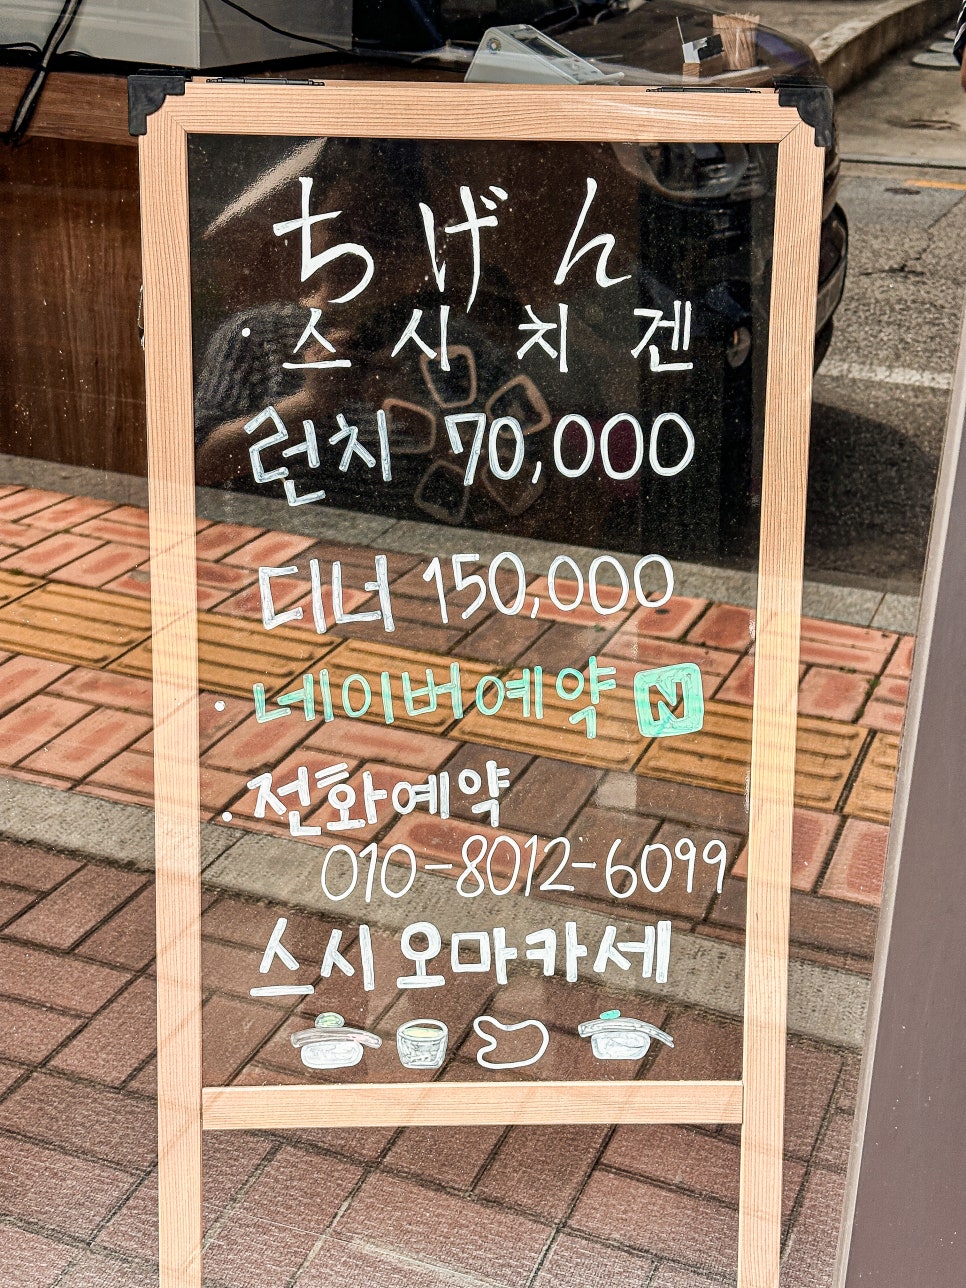 ちげん
· 스시치젠
런치 70,000
디너 150,000
· 네이버예약 N
· 전화예약
010-8012-6099
스시오마카세